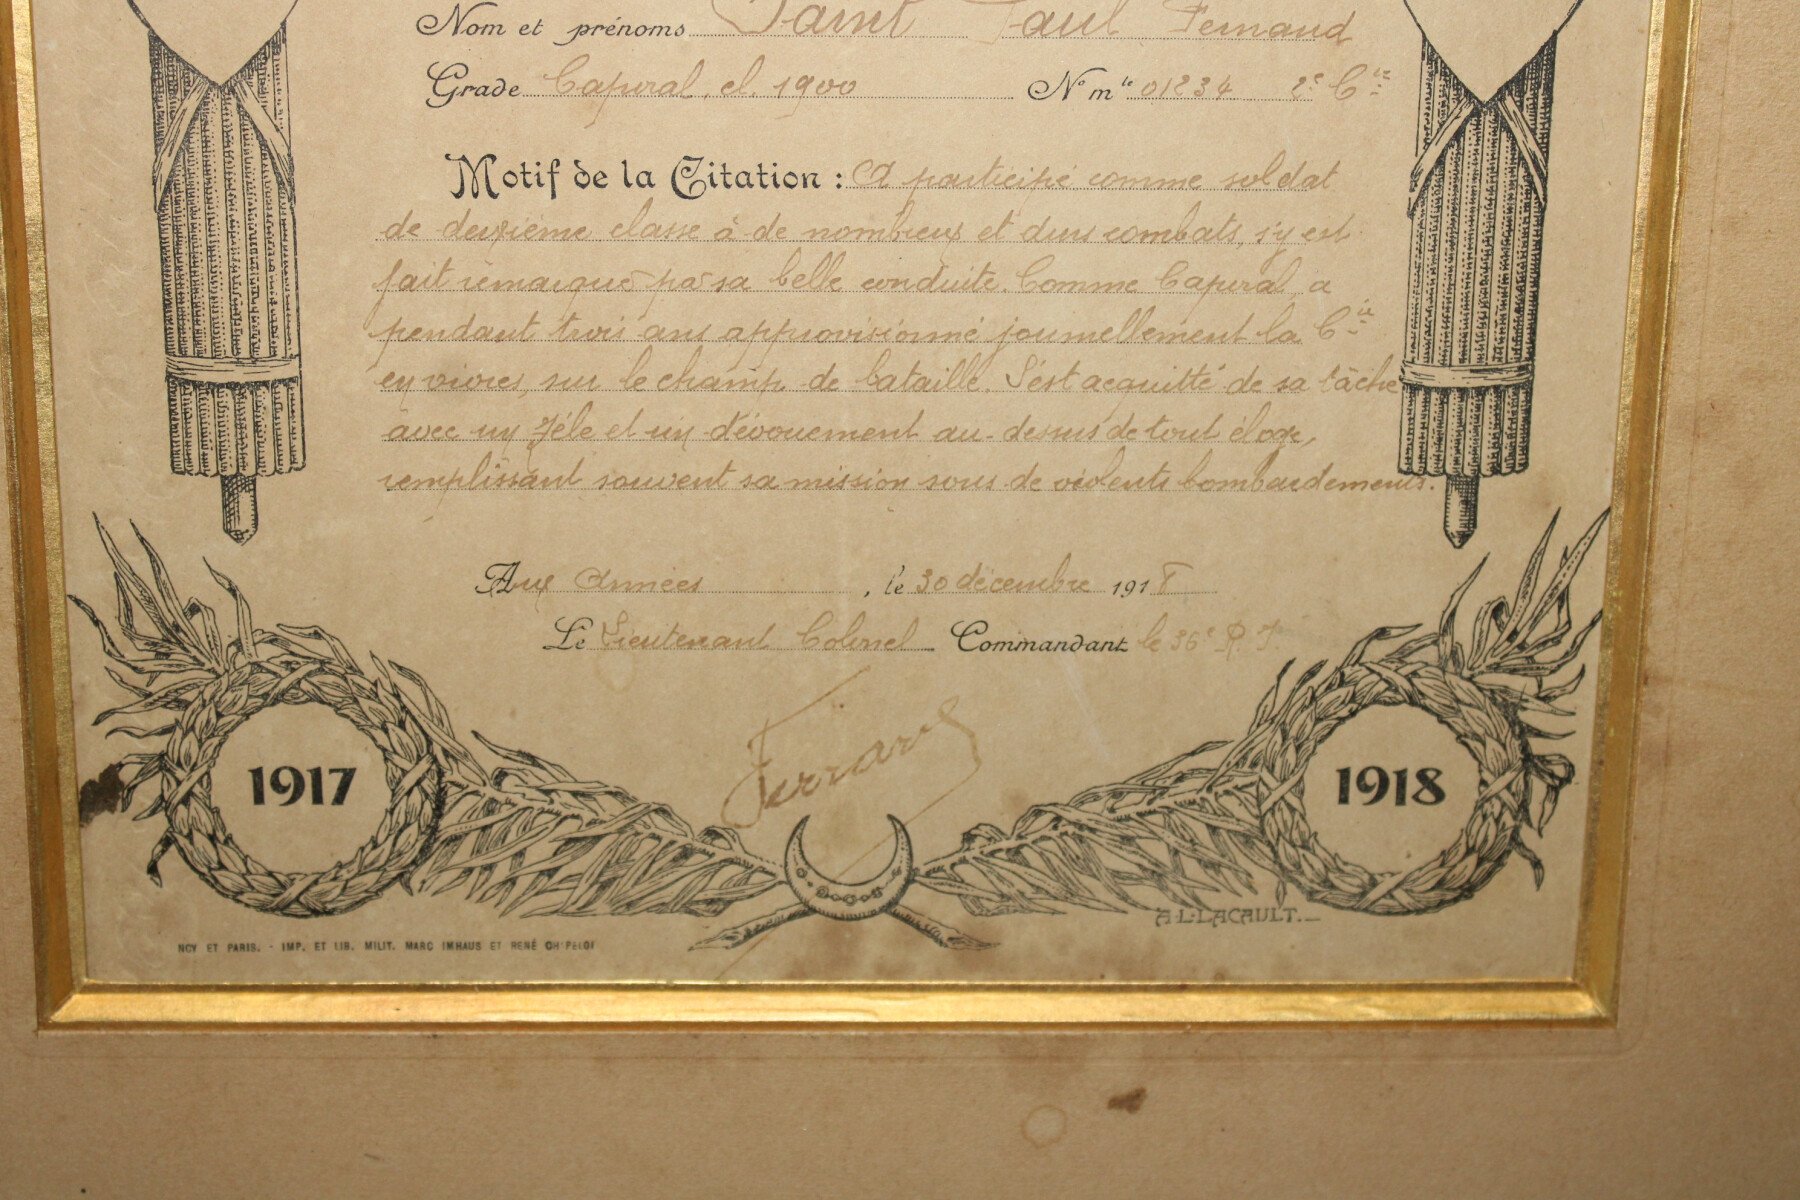 Nom et prénoms Saint Paul Fernand
Grade Caporal, cl. 1900 N° mle 01234 2e Cie
Motif de la Citation : A participé comme soldat
de deuxième classe à de nombreux et durs combats, s'y est
fait remarqué par sa belle conduite. Comme Caporal, a
pendant trois ans approvisionné journellement la Cie
en vivres, sur le champ de bataille. S'est acquitté de sa tâche
avec un zèle et un dévouement au-dessus de tout éloge,
remplissant souvent sa mission sous de violents bombardements.
Aux Armées, le 30 décembre 1918
Le Lieutenant Colonel Commandant le 36e R. I
1917
1918
A.L. LACAULT.
NCY ET PARIS. - IMP. ET LIB. MILIT. MARC IMHAUS ET RENÉ CHAPELOT